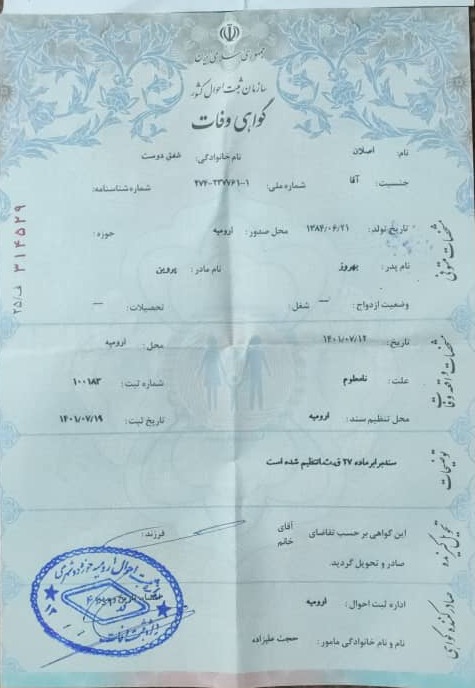 جمهوری اسلامی ایران
سازمان ثبت احوال کشور
گواهی وفات
نام: اصلان نام خانوادگی: شفق دوست
جنسیت: آقا شماره ملی: ۲۷۴-۲۳۷۷۶۱-۱ شماره شناسنامه:
تاریخ تولد: ۱۳۸۴/۰۶/۲۱ محل صدور: ارومیه حوزه:
نام پدر: بهروز نام مادر: پروین
وضعیت ازدواج: — شغل: تحصیلات: —
مشخصات متوفی
۳۱۴۵۲۹
تاریخ: ۱۴۰۱/۰۷/۱۲ محل: ارومیه
علت: نامعلوم شماره ثبت: ۱۰۰۱۸۳
محل تنظیم سند: ارومیه تاریخ ثبت: ۱۴۰۱/۰۷/۱۹
مشخصات واقعه وفات
سند برابر ماده ۲۷ ق.ث.ا تنظیم شده است
توضیحات
این گواهی بر حسب تقاضای آقای خانم فرزند:
صادر و تحویل گردید.
تحویل گیرنده
اداره ثبت احوال: ارومیه
نام و نام خانوادگی مامور: حجت علیزاده
صادرکننده گواهی